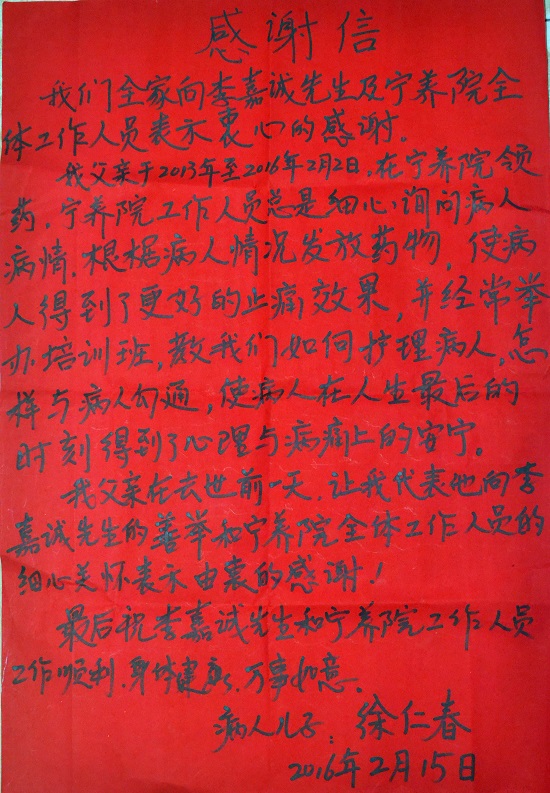 感谢信
我们全家向李嘉诚先生及宁养院全
体工作人员表示衷心的感谢。
我父亲于2013年至2016年2月2日,在宁养院领
药,宁养院工作人员总是细心询问病人
病情,根椐病人情况发放药物,使病
人得到了更好的止痛效果,并经常举
办培训班,教我们如何护理病人,怎
样与病人勾通,使病人在人生最后的
时刻得到了心理与病痛上的安宁。
我父亲在去世前一天,让我代表他向李
嘉诚先生的善举和宁养院全体工作人员的
细心关怀表示由衷的感谢!
最后祝李嘉诚先生和宁养院工作人员
工作顺利、身体健康、万事如意。
病人儿子:徐仁春
2016年2月15日